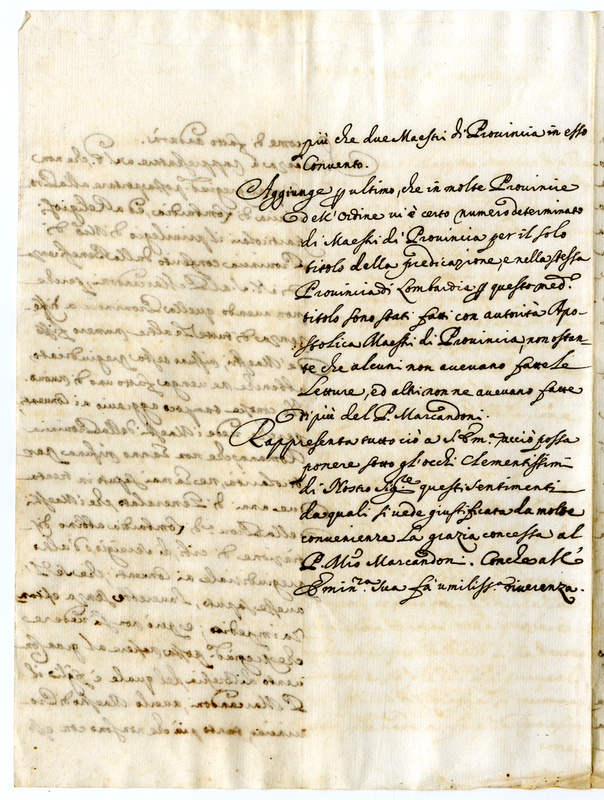 più che due Maestri di Prouincia in esso
Conuento.
Aggiunge p ultimo, che in molte Prouincie
dell'Ordine ui è certo numero determinato
di Maestri di Prouincia per il solo
titolo della Predicazione, e nella stessa
Prouincia di Lombardia p questo med.º
titolo sono stati fatti con autorità Apo-
stolica Maestri di Prouincia, non ostan-
te che alcuni non aueuano fatte le
Letture, ed altri non ne aueuano fatte
di più del P. Marcandoni.
Rappresenta tutto ciò a S. Em.ª acciò possa
ponere sotto gl'occhi Clementissimi
di Nostro Sig.re questi sentimenti
da quali si uede giustificata da molte
conuenienze la grazia concessa al
P. Mro Marcandoni. Con che all'
Eminza Sua fa umiliss.ª riuerenza.